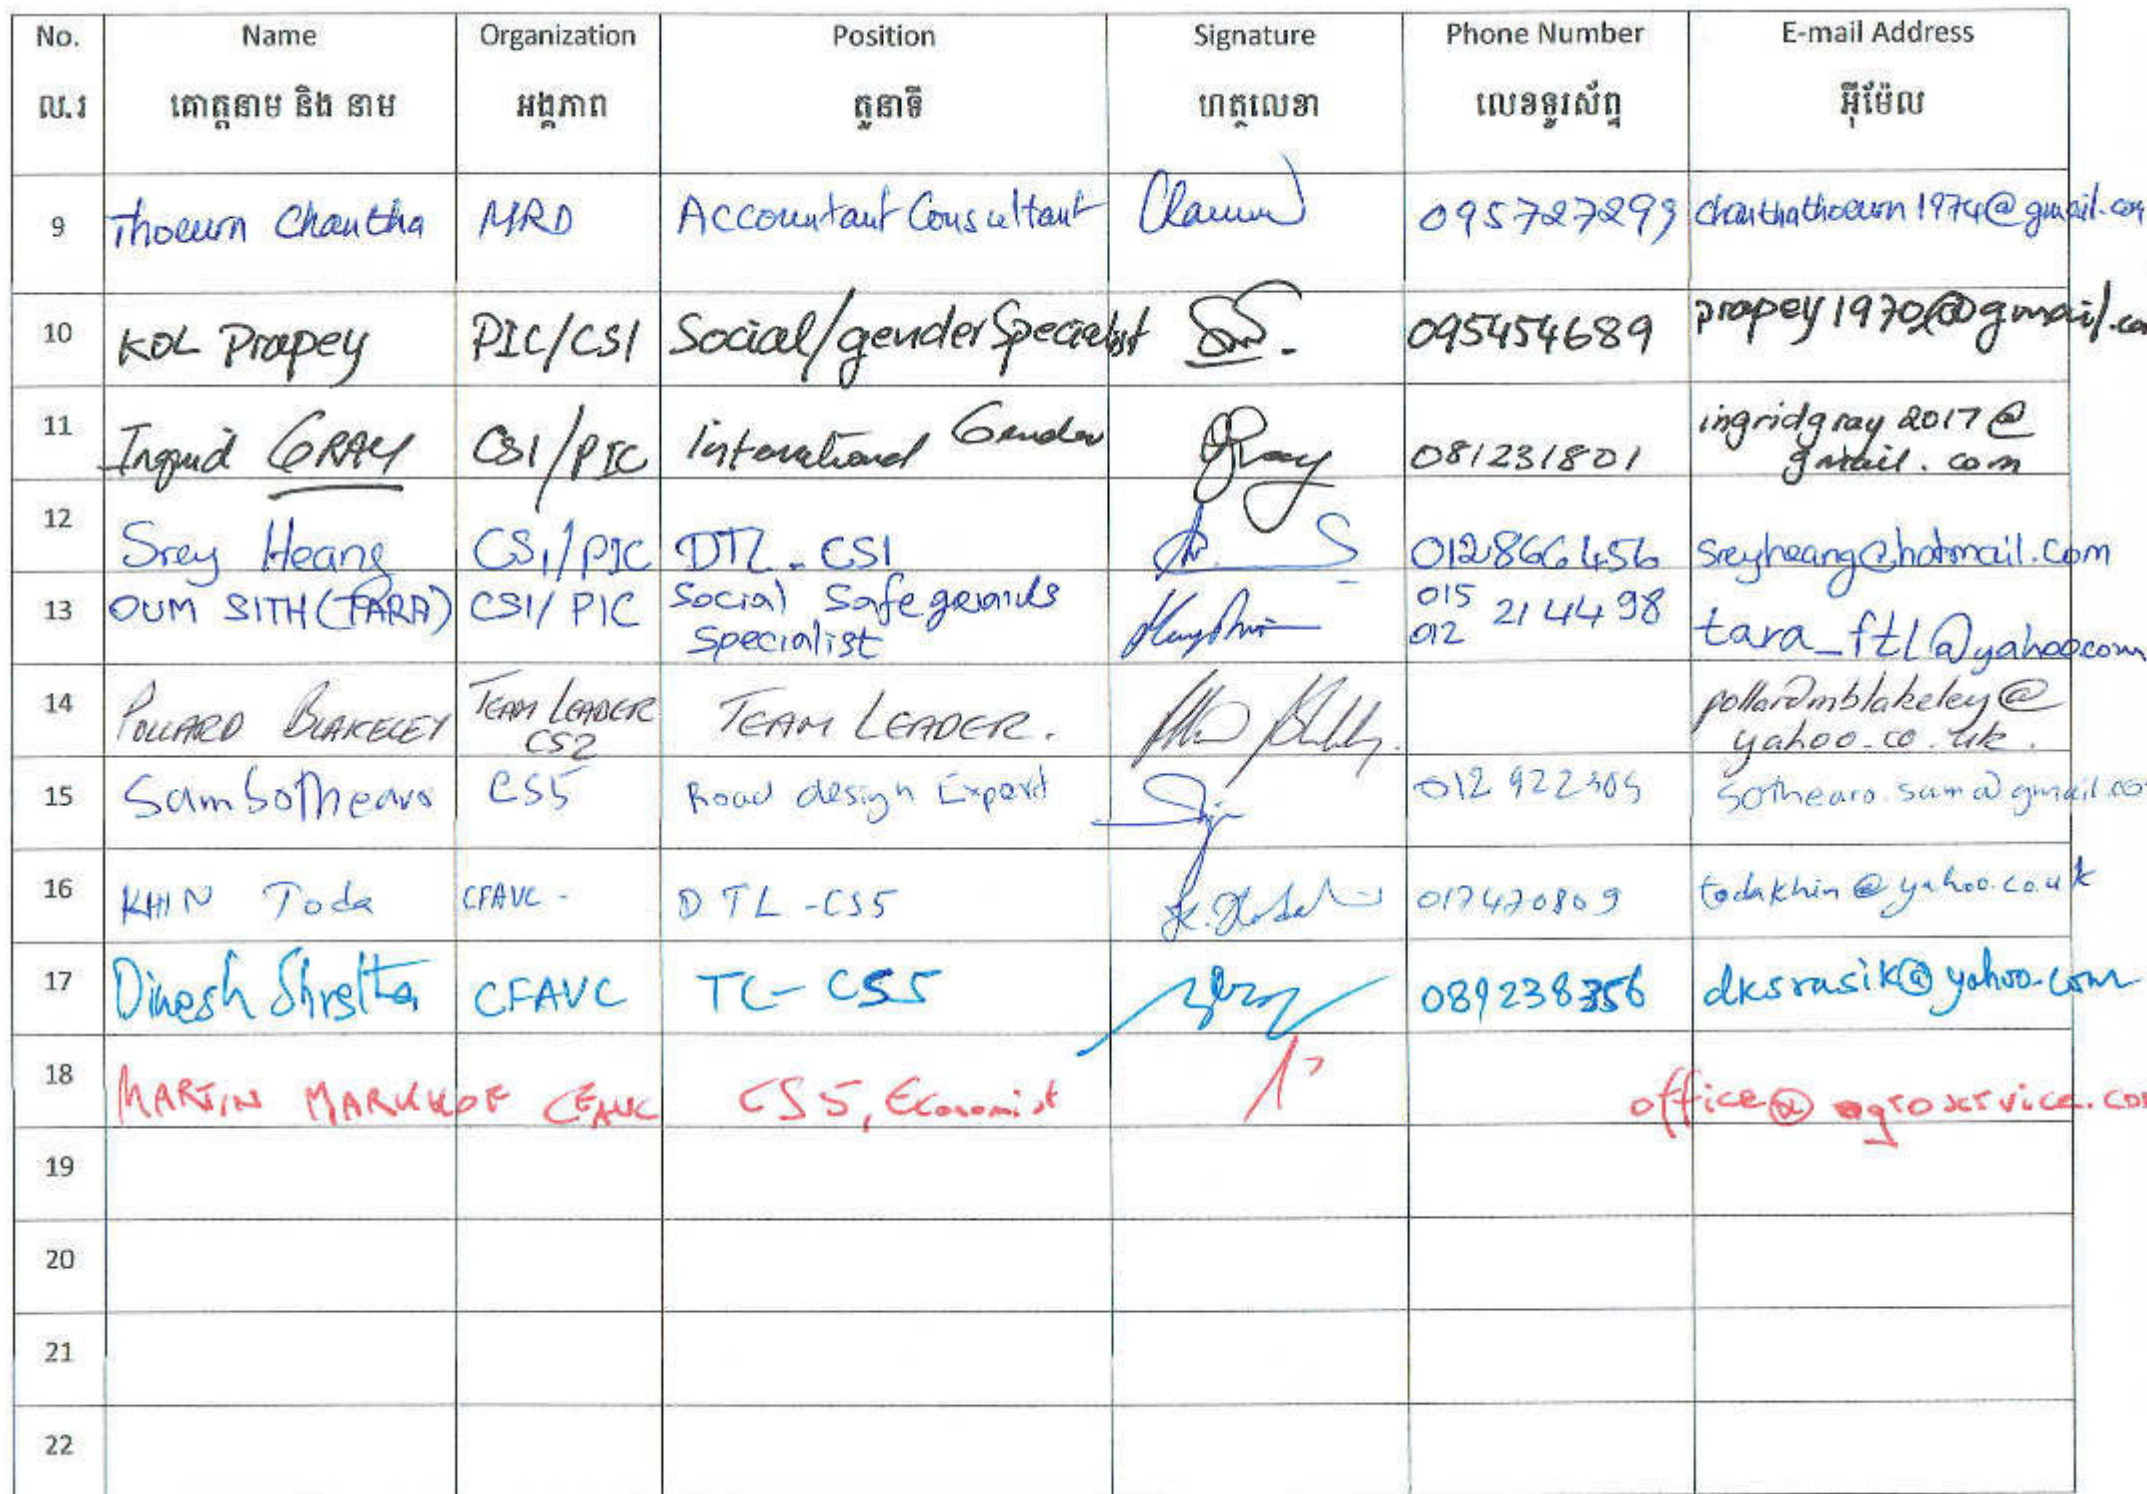 No. Name Organization Position Signature Phone Number E-mail Address
ល.រ គោត្តនាម និង នាម អង្គភាព តួនាទី ហត្ថលេខា លេខទូរស័ព្ទ អ៊ីម៉ែល
9 Thoeurn Chantha MRD Accountant Consultant 095727299 chanthathoeurn1974@gmail.com
10 KOL Propey PIC/CS1 Social/gender Specialist 095454689 propey1970@gmail.com
11 Ingrid GRAY CS1/PIC International Gender 081231801 ingridgray2017@
gmail.com
12 Srey Heang CS1/PIC DTL-CS1 012866456 Sreyheang@hotmail.com
13 OUM SITH (TARA) CS1/PIC Social Safeguards 015 214498
Specialist 012 tara_ftl@yahoo.com
14 POLLARD BLAKELEY TEAM LEADER TEAM LEADER. pollardmblakeley@
CS2 yahoo.co.uk.
15 Sam Sothearo CS5 Road design Expert 012 922305 sothearo.sam@gmail.co
16 KHIN Toda CFAVC - DTL-CS5 017470809 todakhin@yahoo.co.uk
17 Dinesh Shrestha CFAVC TL-CS5 089238356 dksrasik@yahoo.com
18 MARTIN MARKKOF CFAVC CS5, Economist office@agroservice.com
19
20
21
22